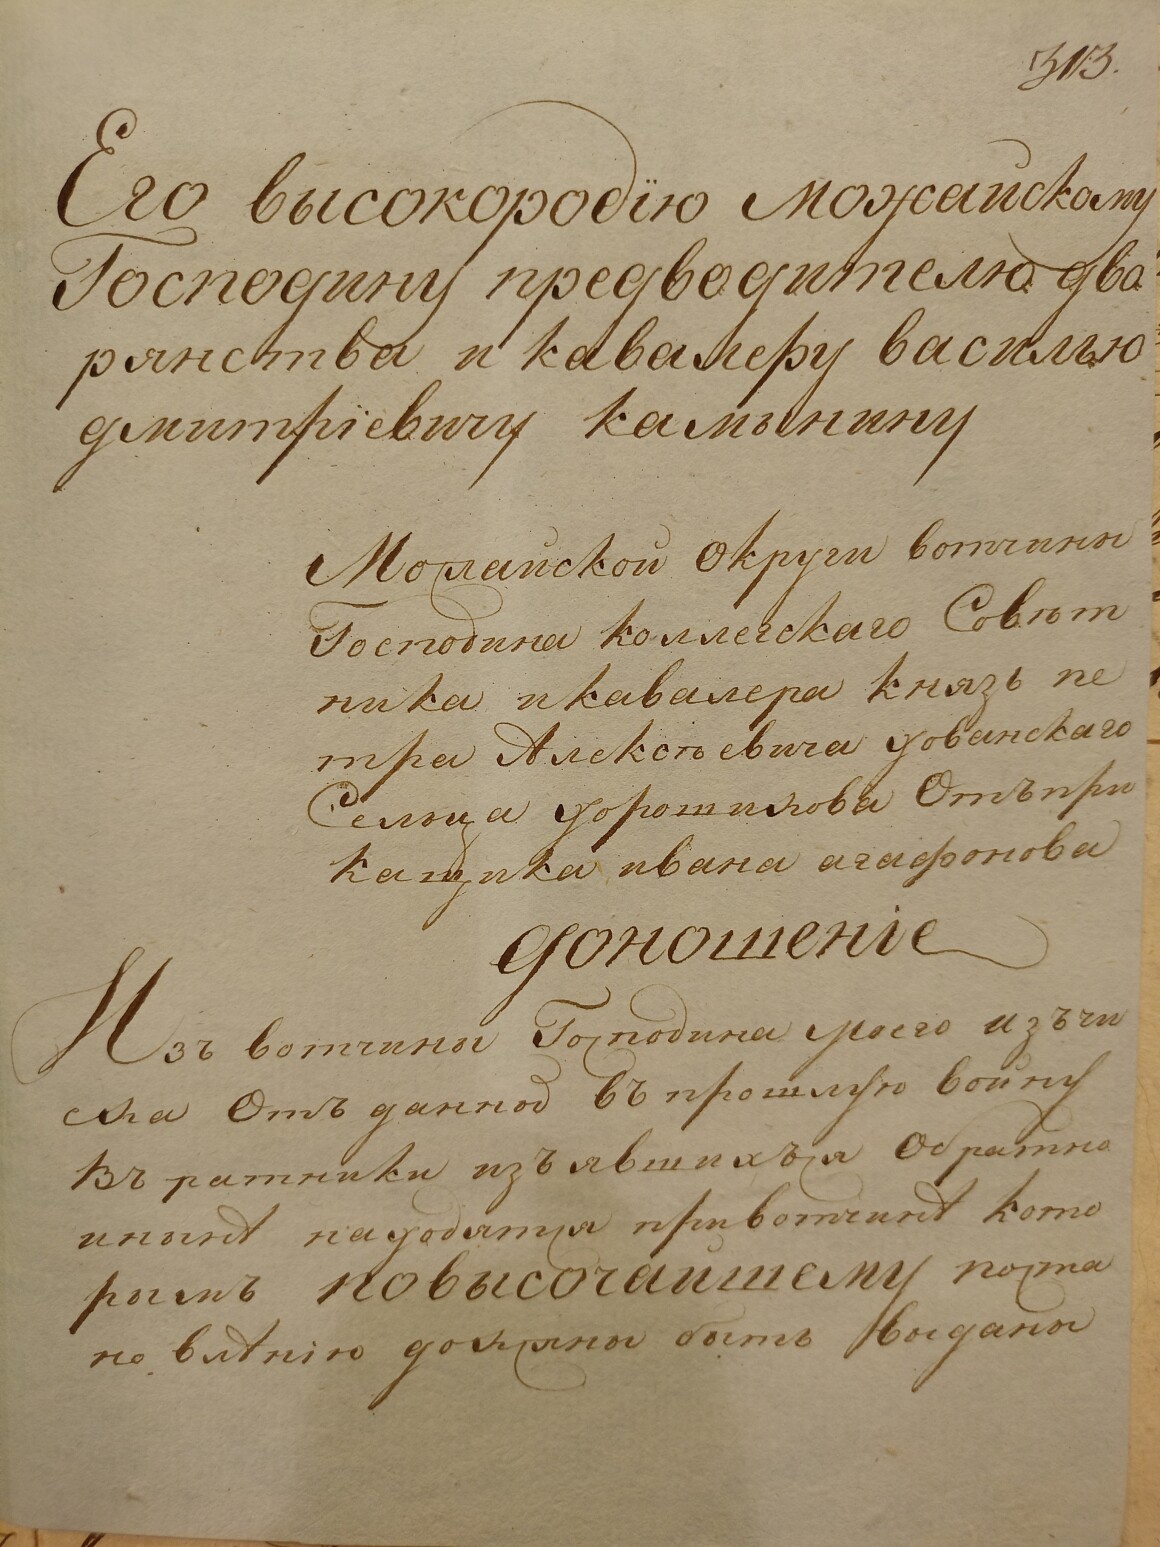 313.
Его высокородїю можайскому
Господину предводителю дво
рянства и кавалеру василью
дмитрїевичу камынину
Можайской округи вотчины
Господина коллегскаго Совѣт
ника икавалера князь пе
тра Алексѣевича хованскаго
Сельца хорошилова Отъпри
кащика ивана агафонова
доношенїе
Изъ вотчины Господина моего изъчи
сла Отъ данной въпрошлую войну
Въ ратники изъявшихъся Обратно
инынѣ находятся привотчинѣ кото
рымъ повысочайшему поста
но влѣнію должны быть выданы